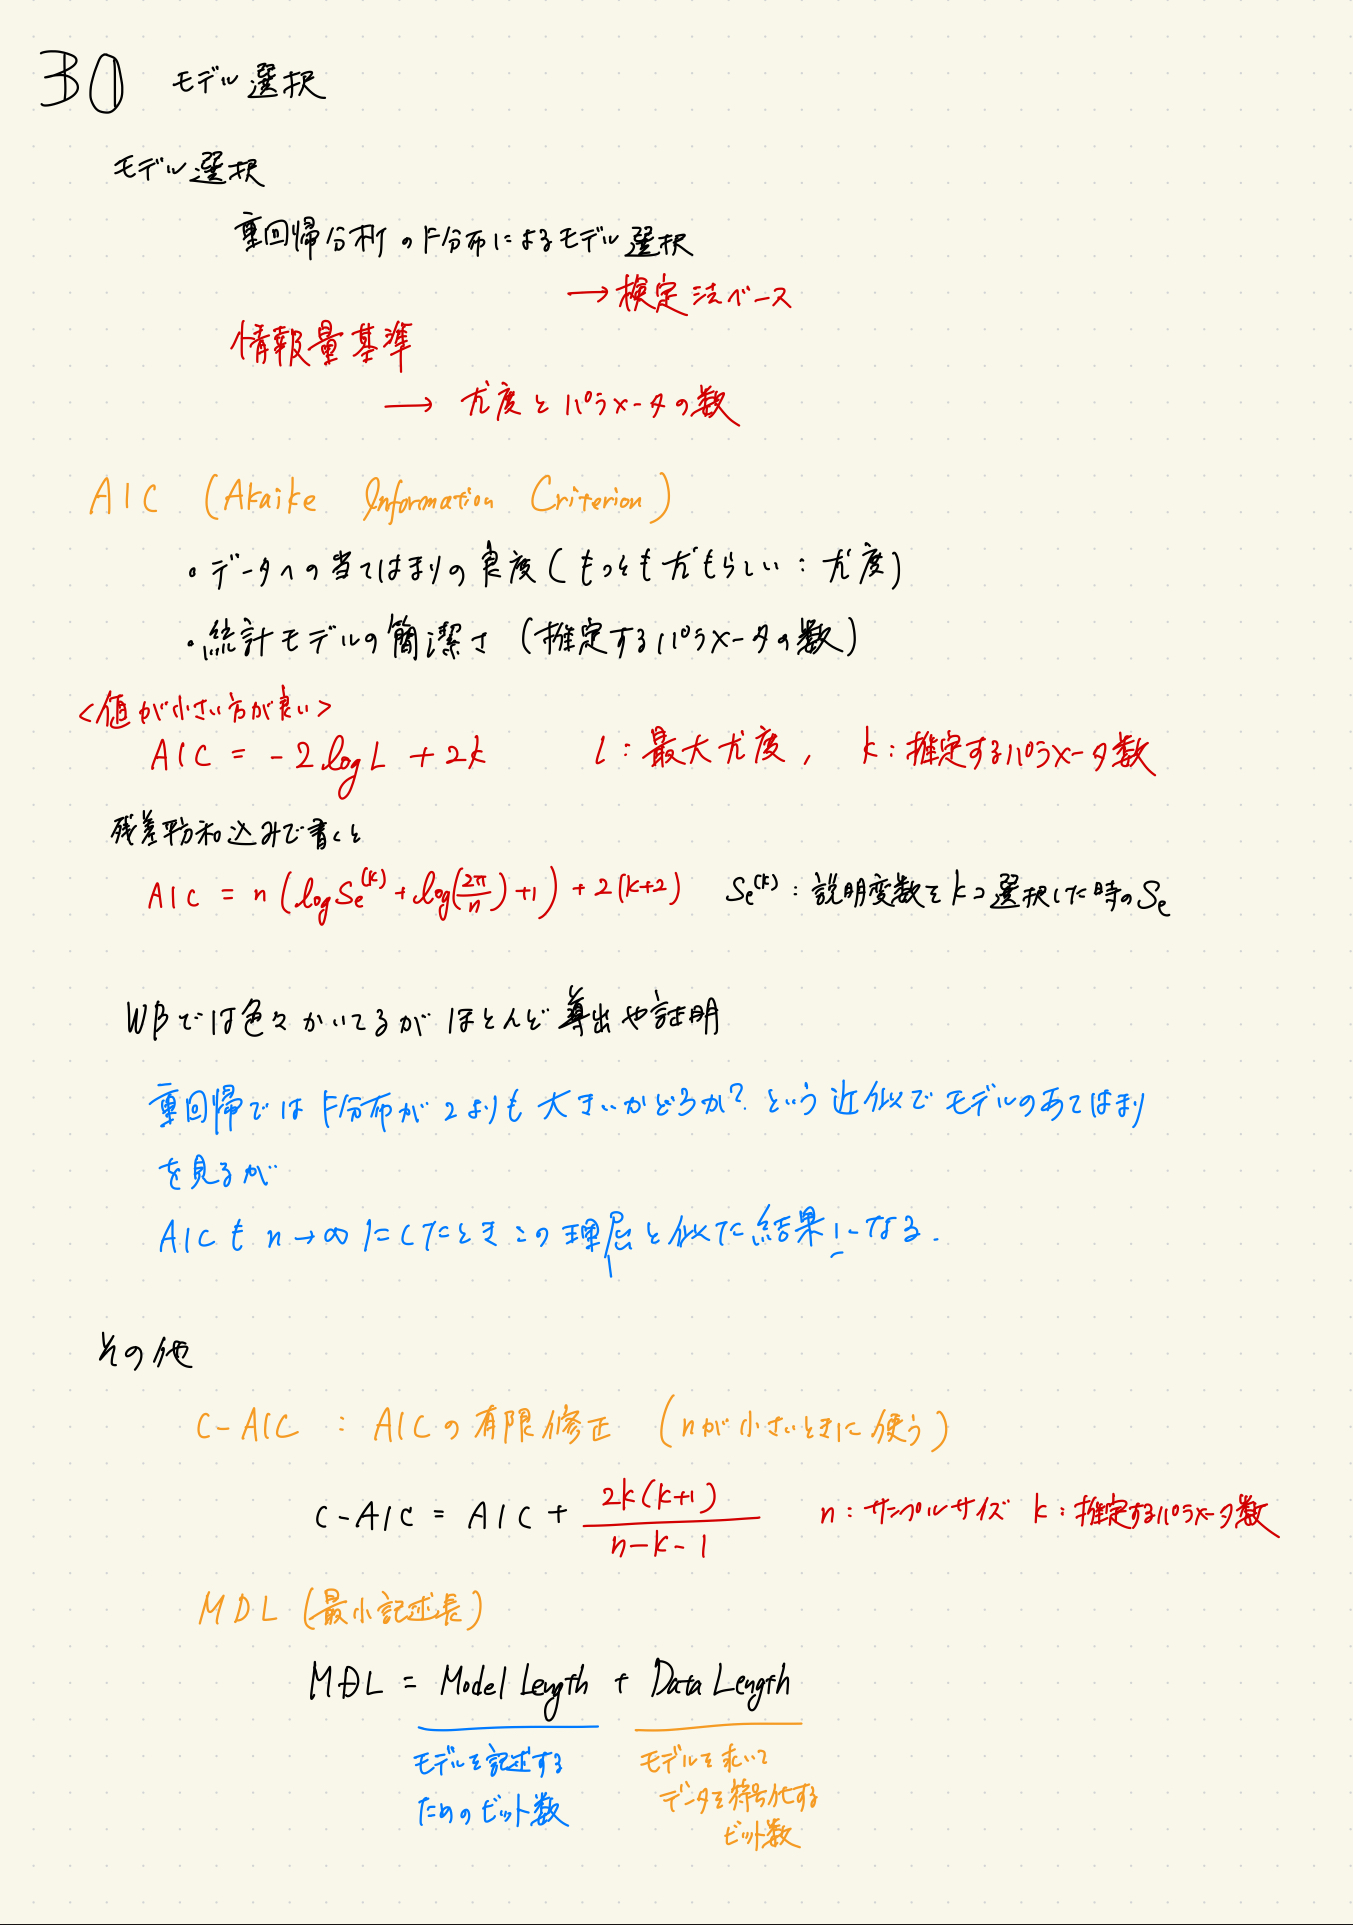 30 モデル選択
モデル選択
重回帰分析のF分布によるモデル選択
→検定法ベース
情報量基準
→ 尤度とパラメータの数
AIC (Akaike Information Criterion)
・データへの当てはまりの良度(もっとも尤もらしい:尤度)
・統計モデルの簡潔さ(推定するパラメータの数)
<値が小さい方が良い>
AIC = -2logL + 2k L:最大尤度, k:推定するパラメータ数
残差平方和込みで書くと
AIC = n(logSe^(k) + log(2π/n) + 1) + 2(k+2) Se^(k):説明変数をkコ選択した時のSe
WBでは色々かいてるがほとんど導出や証明
重回帰ではF分布が2よりも大きいかどうか?という近似でモデルのあてはまり
を見るが
AICもn→∞にしたときこの理屈と似た結果になる.
その他
C-AIC : AICの有限修正 (nが小さいときに使う)
C-AIC = AIC + 2k(k+1)/(n-k-1) n:サンプルサイズ k:推定するパラメータ数
MDL (最小記述長)
MDL = Model Length + Data Length
モデルを記述する モデルを求いて
ためのビット数 データを符号化する
ビット数